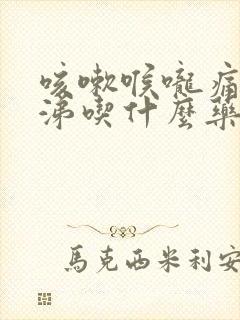 咳嗽喉嚨痛
涕喫什麼藥
馬克西米利安